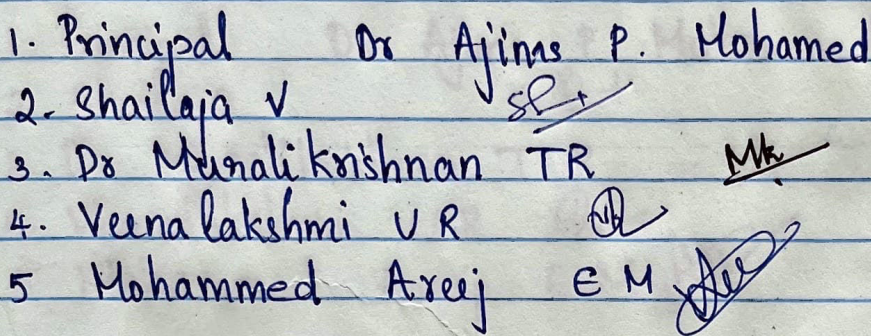 1. Principal Dr Ajims P. Mohamed
2. Shailaja V
3. Dr Muralikrishnan TR
4. Veenalakshmi U R
5 Mohammed Areej E M